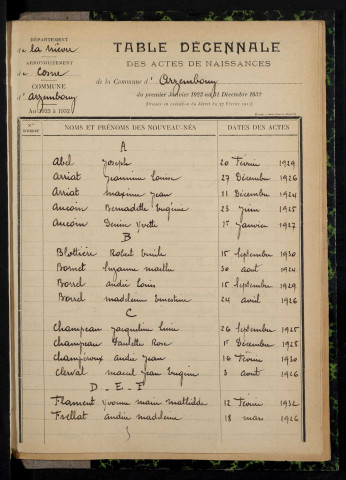 DÉPARTEMENT
de la Nièvre
ARRONDISSEMENT
de Cosne
COMMUNE
d'Arzembouy
An 1923 à 1932
TABLE DÉCENNALE
DES ACTES DE NAISSANCES
de la Commune d'Arzembouy
du premier Janvier 1923 au 31 Décembre 1932
NOMS ET PRÉNOMS DES NOUVEAU-NÉS DATES DES ACTES
A
Abel Joseph 20 Février 1929
Arriat Jeannine Louise 27 Décembre 1926
Arriat Maxime Jean 21 Décembre 1924
Aucoin Bernadette Eugénie 23 Juin 1925
Aucoin Denise Yvette 1er Janvier 1927
B
Blottière Robert Emile 15 Septembre 1930
Bornet Suzanne 30 août 1924
Borrel André Louis 15 Septembre 1929
Borrel Madeleine Ernestine 24 avril 1926
C
Champeau Jacqueline 26 Septembre 1925
Champeau Paulette Rose 1er Décembre 1928
Champiroux André Jean 16 Février 1930
Clerval Marcel Jean Eugène 3 août 1926
D - E - F
Flament Yvonne Marie Mathilde 12 Février 1932
Andrée Madeleine 18 mars 1926